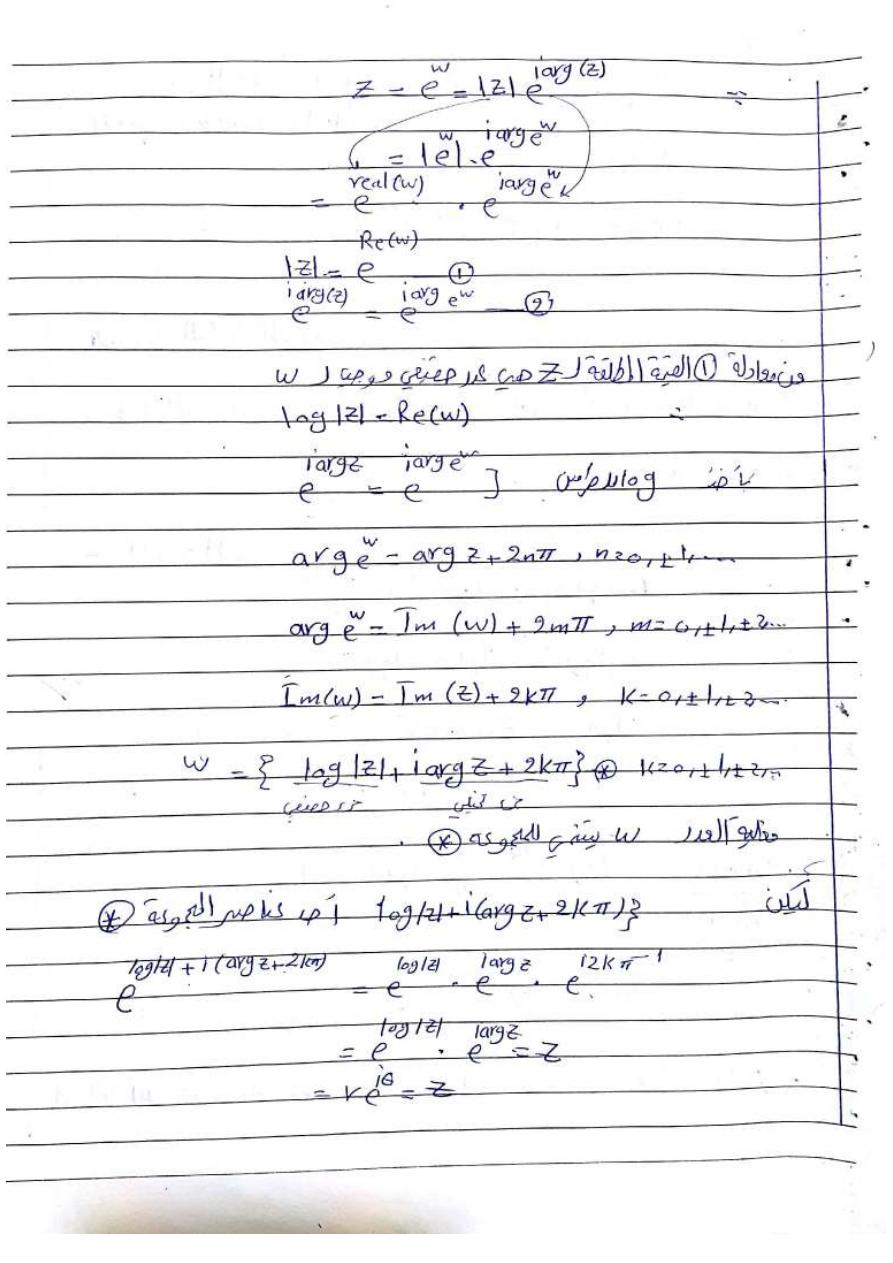 ∴ z = e^w = |z| e^{i arg(z)}
= |e^w| . e^{i arg e^w}
= e^{real(w)} . e^{i arg e^w}
|z| = e^{Re(w)} — ①
e^{i arg(z)} = e^{i arg e^w} — ②
من معادلة ① القيمة المطلقة لـ z هي عدد حقيقي موجب لـ w
∴ log |z| = Re(w)
بأخذ log للطرفين [ e^{i arg z} = e^{i arg e^w}
arg e^w = arg z + 2nπ , n=0, ±1, ....
arg e^w = Im (w) + 2mπ , m= 0, ±1, ±2...
Im(w) = Im (z) + 2kπ , k= 0, ±1, ±2 ....
w = { log |z| + i arg z + 2kπ } ⊛ k=0, ±1, ±2, ..
جزء حقيقي جزء تخيلي
العدد w ينتمي للمجموعة ⊛ .
log|z| + i(arg z + 2kπ)} أحد عناصر المجموعة ⊛
e^{log|z| + i(arg z + 2kπ)} = e^{log|z|} . e^{i arg z} . e^{i2kπ} 1
= e^{log|z|} . e^{i arg z} = z
= r e^{iθ} = z